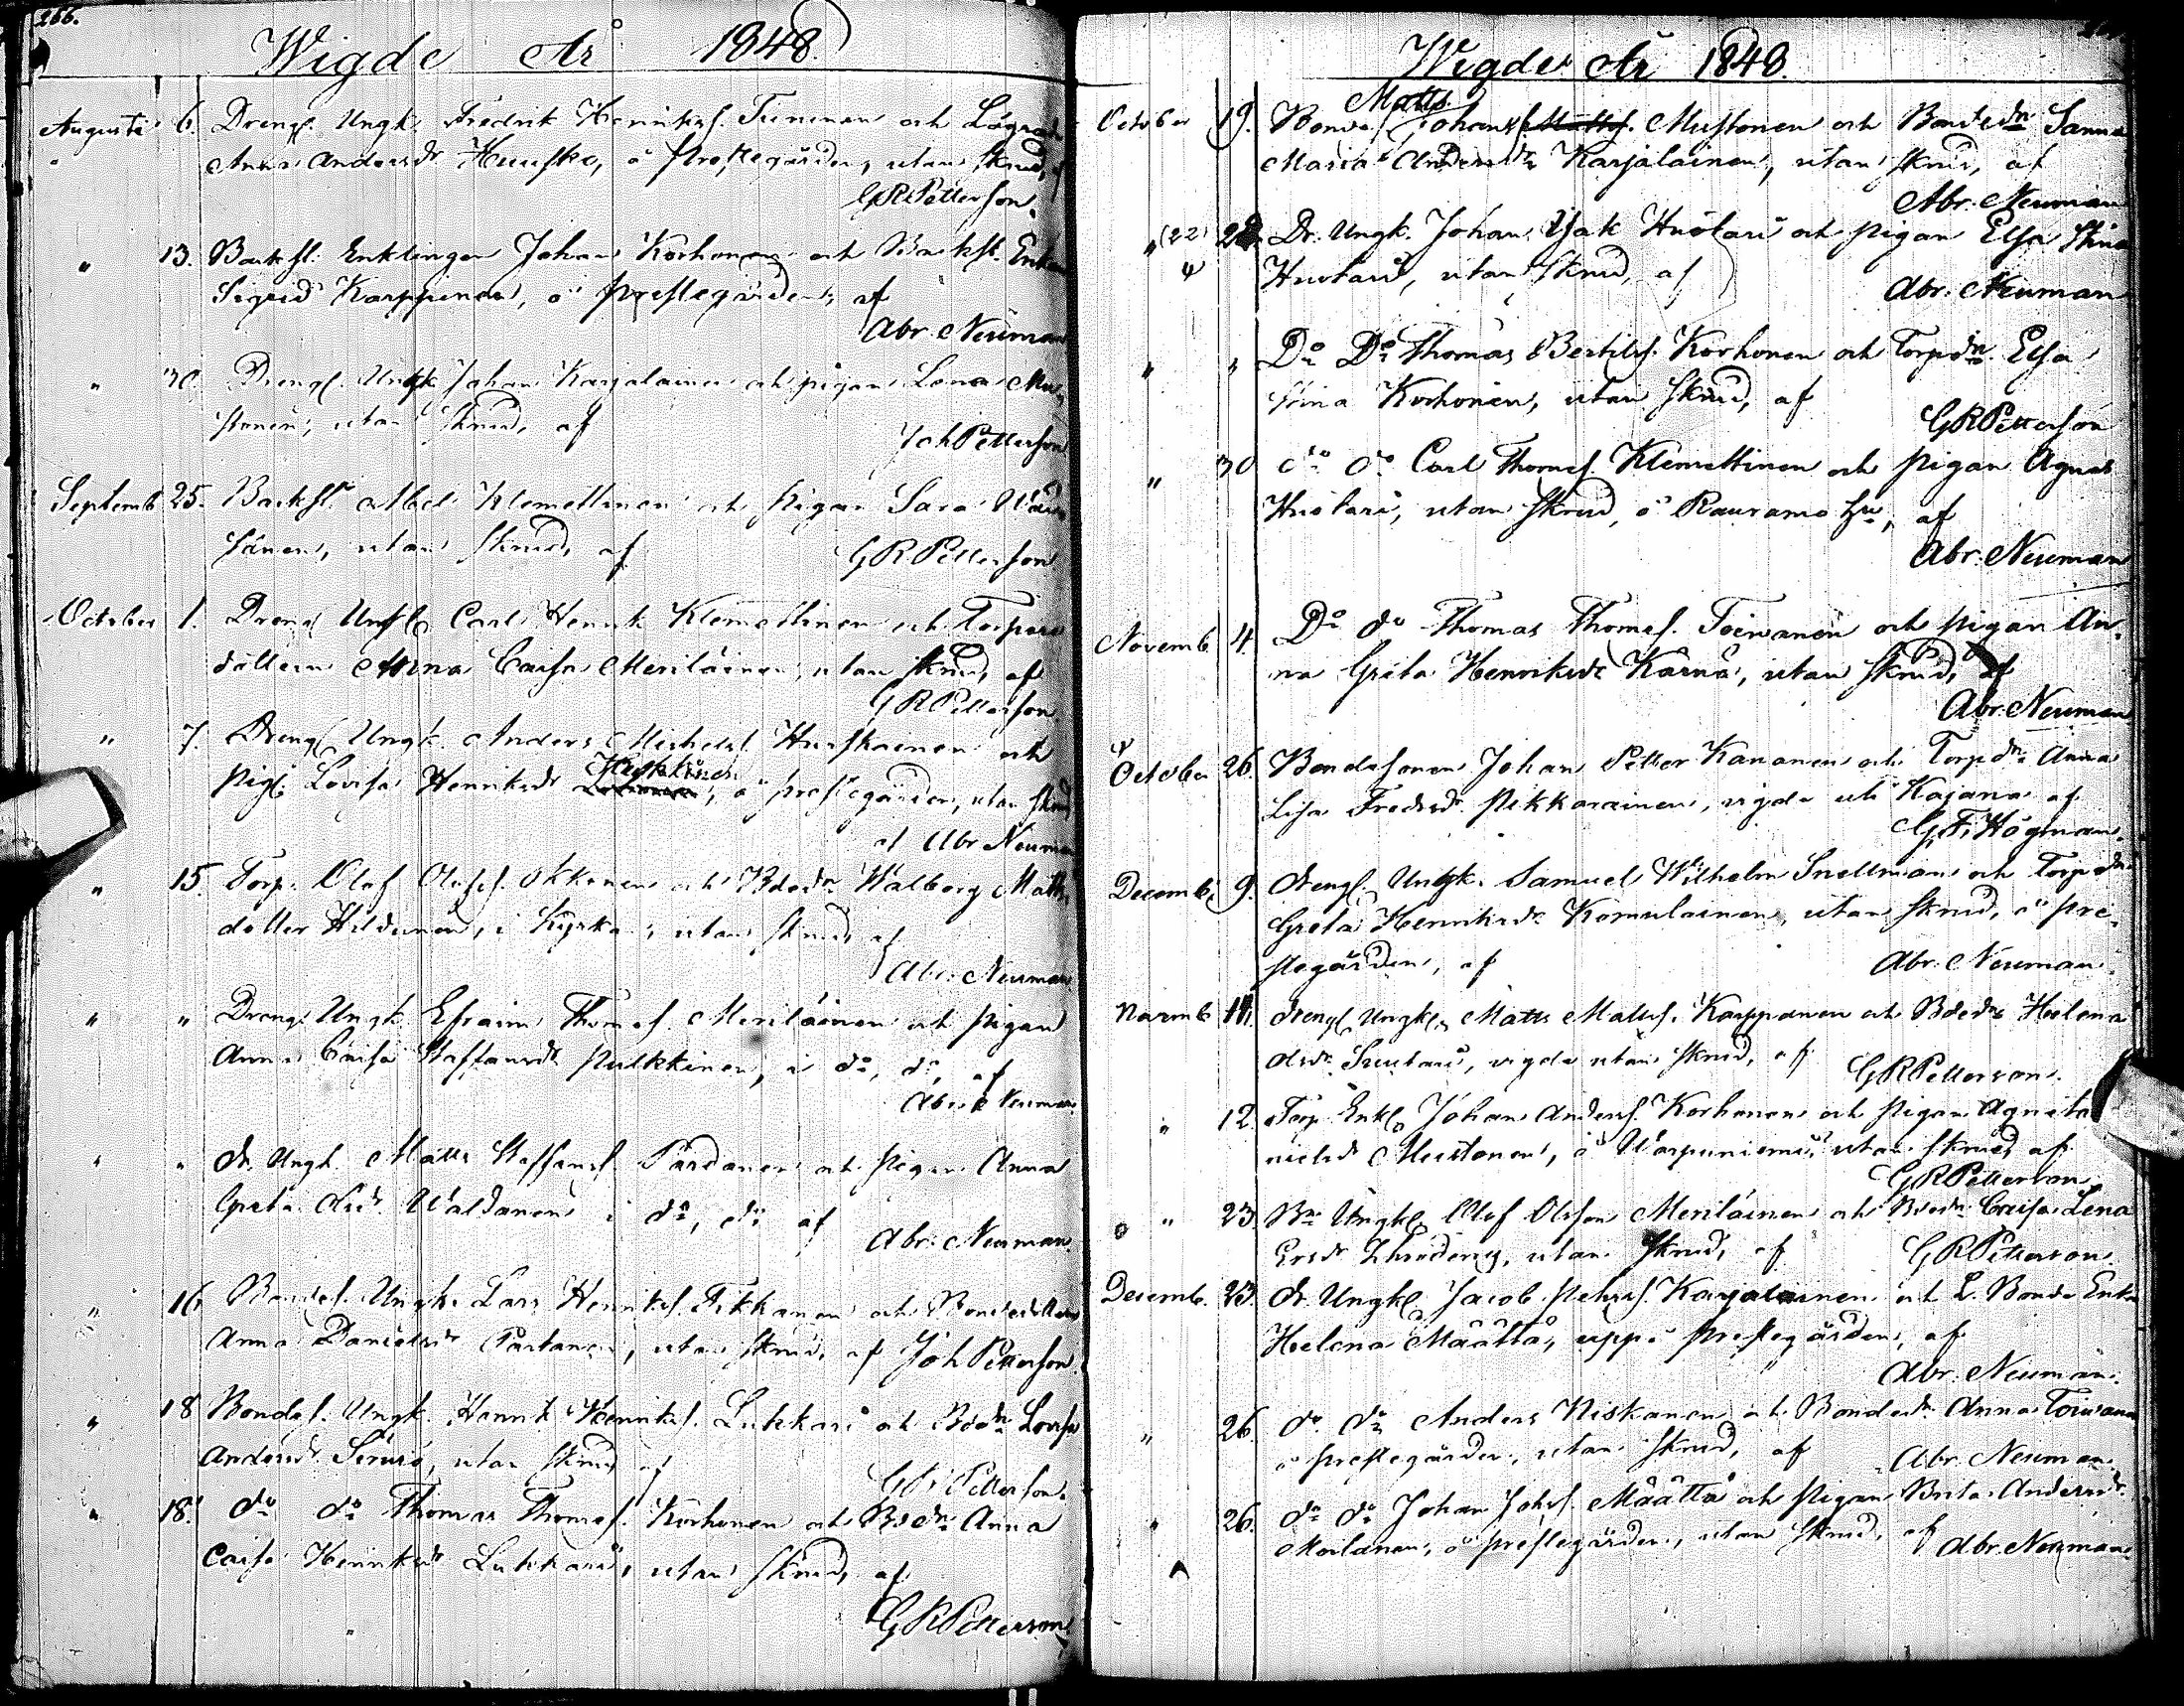 266.
Wigde År 1848.
Augusti 6. Drengs. Ungk. Fredrik Henriks. Tuninen och Lögred.
Anna Andersdr Heuske, å Prestegården, utan skrud, af
GRPetterson.
" 13. Backst. Enklingen Johan Korhonen och Backst. Enkan
Sigrid Karppinen, å prestegården, af
Abr. Neuman
" 30. Drengs. Ungk. Johan Karjalainen och pigan Lena Mu-
stonen, utan skrud, af
Joh Petterson
Septemb. 25. Backst. Abel Klemettinen och Pigan Sara Wäi-
sänen, utan skrud, af
GRPetterson
October 1. Dreng Ungk. Carl Henrik Klemettinen och Torpare
dottern Anna Caisa Meriläinen, utan skrud, af
GRPetterson.
" 7. Drengs. Ungk. Anders Michels. Hurskainen och
Pig. Lovisa Henriksdr å prestegården, utan skrud
af Abr Neuman
" 15. Torp. Olof Olofs. Okkonen och Bdedr Walborg Matts
dotter Hildunen, i Kyrkan, utan skrud, af
Abr. Neuman
" " Dreng. Ungk. Efraim Thomas. Meriläinen och pigan
Anna Caisa Staffansdr Pulkkinen, i do, do, af
Abr. Neuman.
" " dr. Ungk. Matts Staffans. Pardanen och Pigan Anna
Greta Waldanen i do, do af
Abr. Neuman.
" 16 Bondes. Ungk. Lars Henriks. Tikkanen och Bondedottern
Anna Danielsdr Partanen, utan skrud, af Joh Petterson.
" 18 Bondes. Ungk. Henrik Henriks. Lukkari och Bdedr Lovisa
Andersdr Servio, utan skrud af
GRPetterson.
" 18. do do Thomas Thomas. Korhonen och Bdedr Anna
Caisa Henriksdr Lukkari, utan skrud, af
GRPetterson.
Wigde År 1848.
Matts
October 19. Bondes. Johans. Matts. Mustonen och Bondedr Sanna
Maria Andersdr Karjalainen, utan skrud, af
Abr. Neuman
" (22) 22. Dr. Ungk. Johan Isak Huotari och pigan Elsa Stina
Huotari, utan skrud, af
Abr. Neuman
" " Do Do Thomas Bertils. Korhonen och Torpdr. Elsa
Stina Korhonen, utan skrud, af
GRPetterson
" 30 do do Carl Thomas. Klemettinen och pigan Agnes
Huotari, utan skrud, å Rauramo hu, af
Abr. Neuman
Novemb. 4. Do do Thomas Thomas. Toiwanen och pigan An-
na Greta Henriksdr Kärnä, utan skrud, af
Abr. Neuman
October 26. Bondesonen Johan Petter Kananen och Torpdr Anna
Lisa Fredrdr. Pikkarainen, vigde uti Kajana af
G. F. Högman.
Decemb. 9. drengs. Ungk. Samuel Wilhelm Snellman och Torpdr
Greta Henriksdr Komulainen, utan skrud, å pre-
stegården, af
Abr. Neuman.
Novemb. 11. drengs. Ungk. Matts Matts. Karppanen och Bdedr Helena
Suutari, vigde utan skrud, af
GRPetterson.
" 12. Torp. Enkl. Johan Anders. Korhonen och pigan Agneta
Mustonen, å Warpuniemi, utan skrud, af
GRPetterson.
" 23 Bde Ungk. Olof Olsson Meriläinen och Bdedr Caisa Lena
Ersdr utan skrud, af
GRPetterson.
Decemb. 23. dr. Ungk. Jacob Pehrs. Karjalainen och L. Bonde Enk.
Helena Määttä, uppå prestegården, af
Abr. Neuman.
" 26. do do Anders Niskanen och Bondedr Anna Toiwanen
å prestegården, utan skrud, af
Abr. Neuman.
" 26. do do Johan Johs. Määttä och Pigan Brita Andersdr
Moilanen, å prestegården, utan skrud, af
Abr. Neuman.